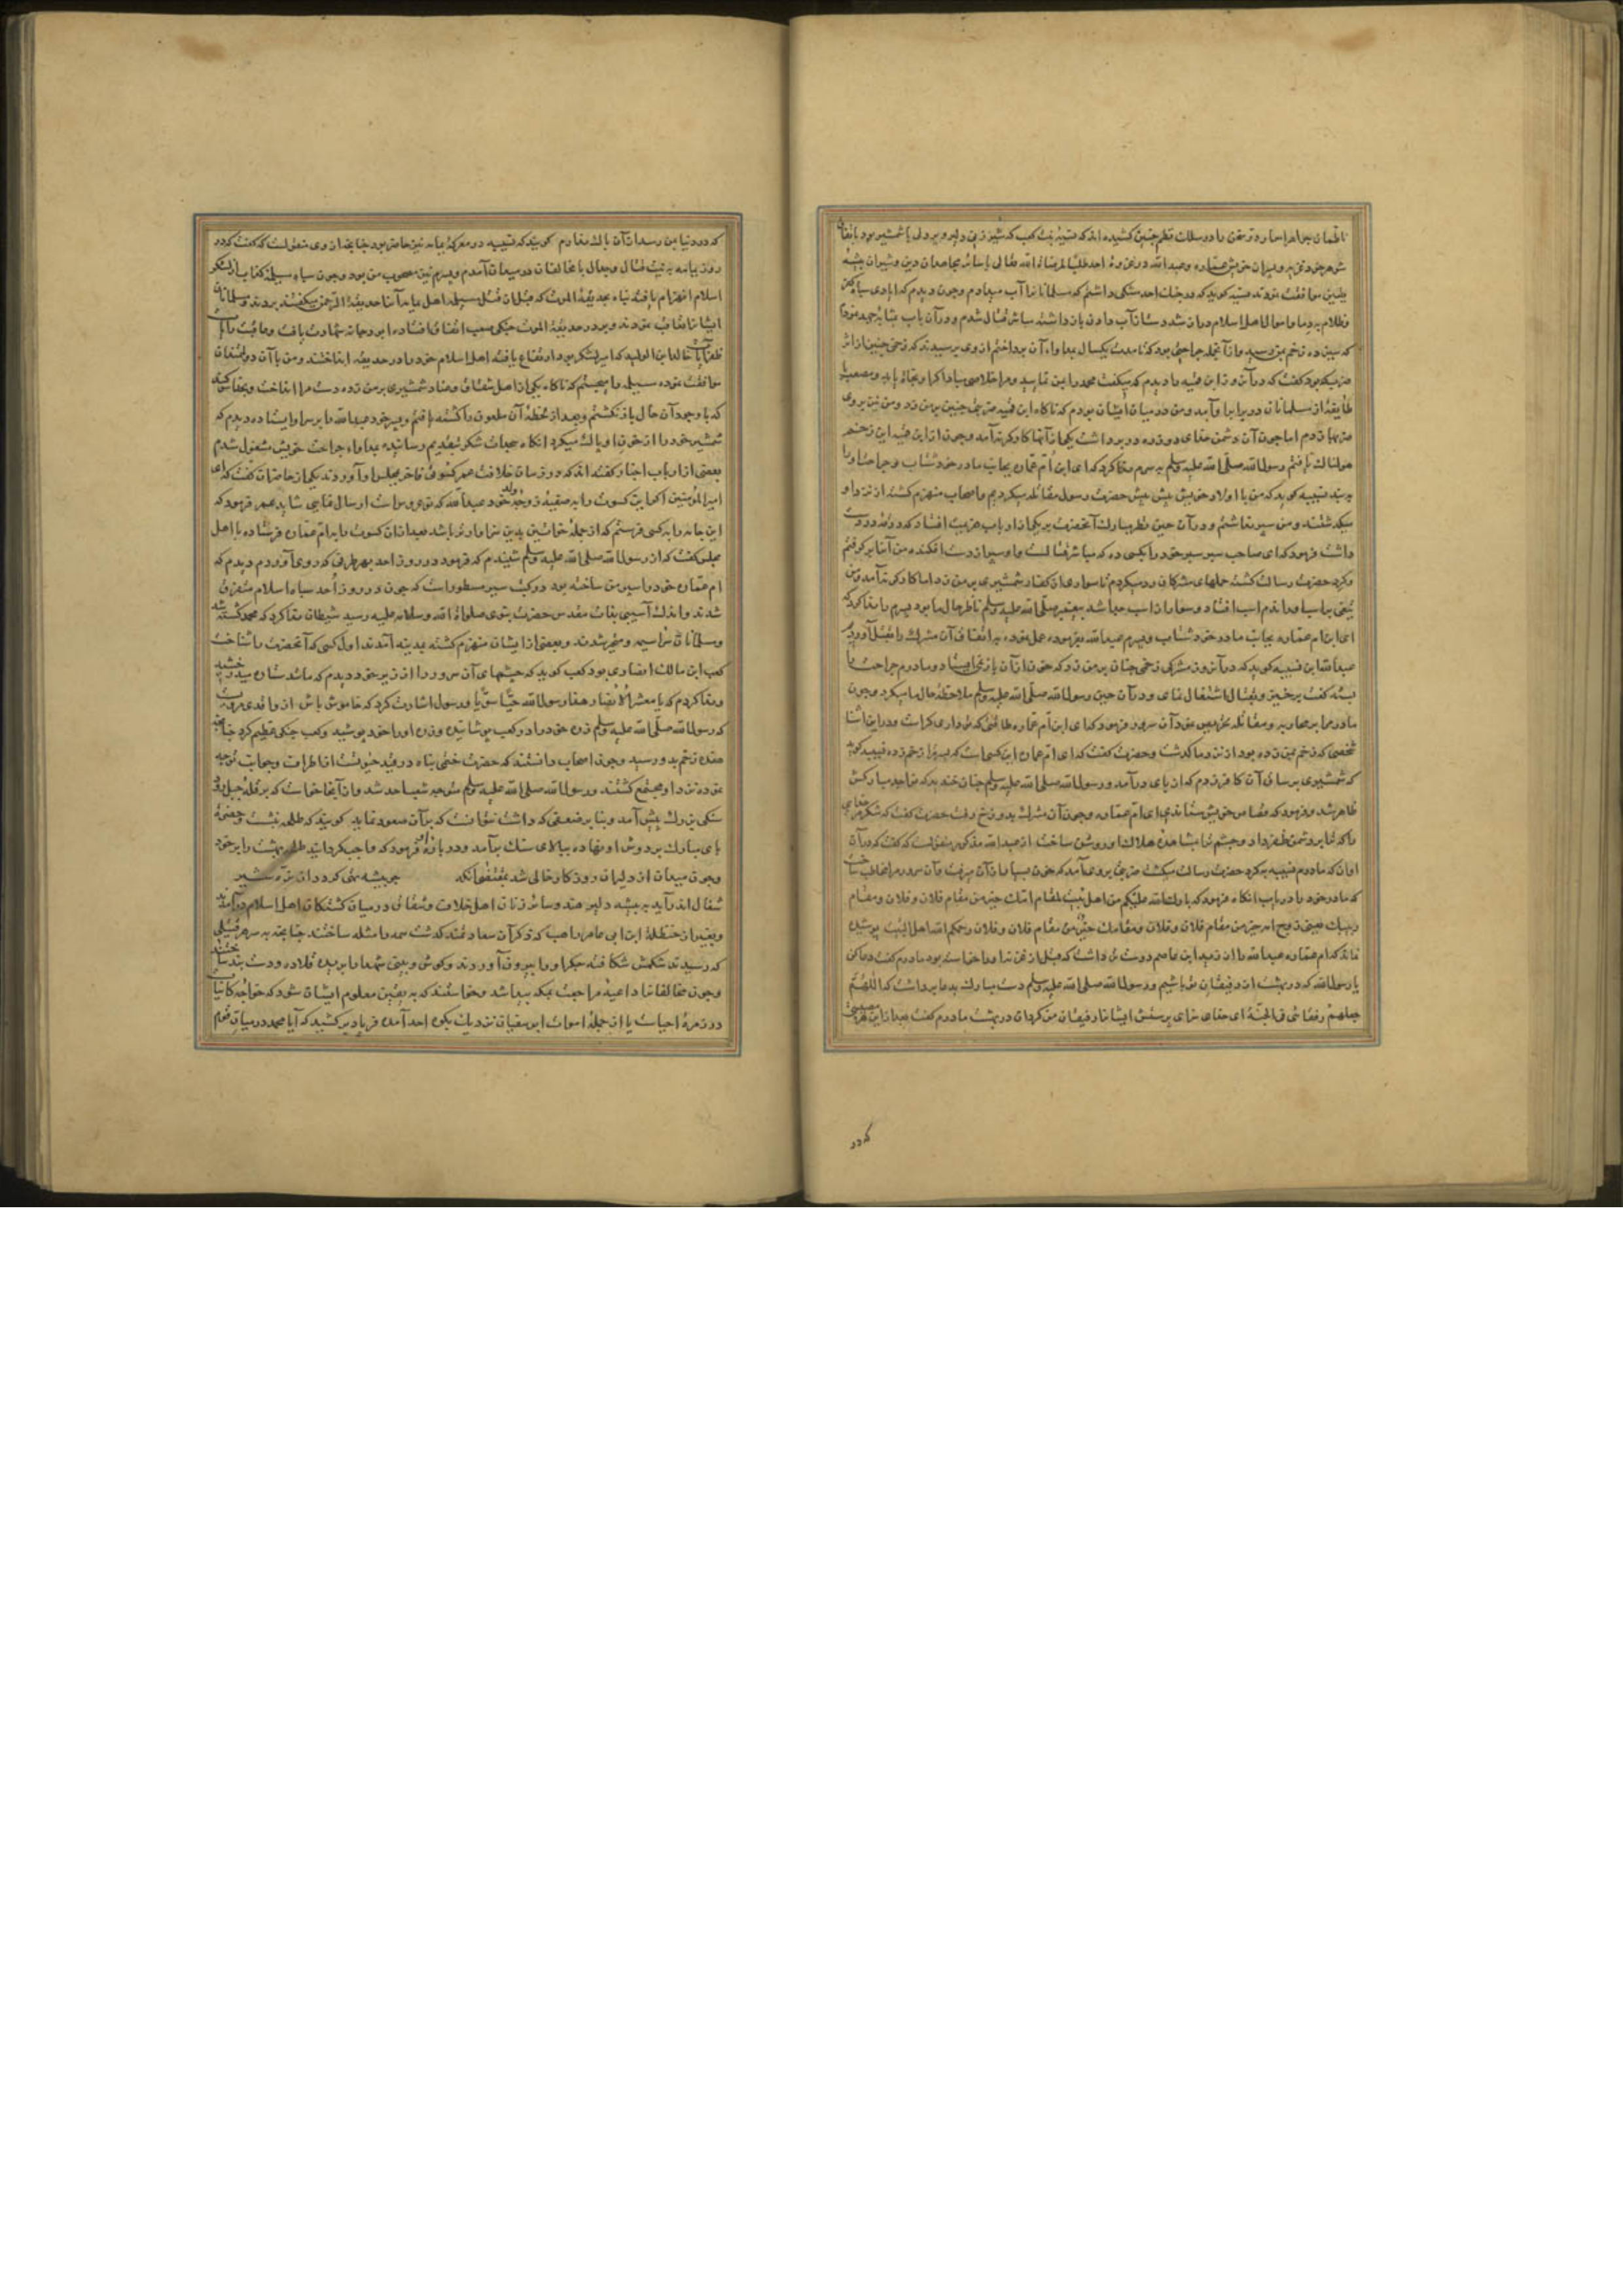 ناظمان جواهر اخبار و در سخن را در سلک نظم چنین کشیده اند که نسیبه بنت کعب که شیر زنی دلیر و پر دلی با شمشیر بود باتفاق
شوهر خود و پسران خویش عماره و عبدالله در غزوهٔ احد طلبا لمرضاة الله تعالی با سایر مجاهدان دین و شیران بیشه
یقین موافقت نمودند نسیبه کوید که در جنک احد مشکی داشتم که مسلمانانرا آب میدادم و چون دیدم که ایادی سپاه کفر
و ظلام بر دما و اموال اهل اسلام دراز شد دست از آب دادن باز داشته مباشر قتال شدم و در آن باب بمثابه جد نمودم
که سیزده زخم بمن رسید و از آنجمله جراحتی بود که تا مدت یکسال بمداواه آن پرداختم از وی پرسیدند که زخمی چنین از اثر
ضرب که بود گفت که در آنروز ابن قمیه را دیدم که میگفت محمد را بمن نمایید و مرا خلاصی مباد اگر او نجاة یابد و مصعب با
طایفهٔ از مسلمانان در برابر او آمد و من در میان ایشان بودم که ناکاه ابن قمیه ضربتی چنین بر من زد و من نیز بر وی
ضربها زدم اما چون آن دشمن خدای دو زره در بر داشت یکی از آنها کارکر نیامد و چون از ابن قمیه این زخم
هولناک یافتم رسول الله صلی الله علیه وسلم پسرم ندا کرد که ای ابن ام عماره بجانب مادر خود شتاب و جراحت او را
بربند نسیبه کوید که من با اولاد خویش پیش پیش حضرت رسول مقاتله میکردیم و اصحاب منهزم کشته از نزد او
میکذشتند و من سپر نداشتم و در آن حین نظر مبارک آنحضرت بر یکی از ارباب هزیمت افتاد که درقه در دست
داشت فرمود که ای صاحب سپر سپر خود را بکسی ده که مباشر قتالست او سپر از دست افکنده من آنرا برکرفتم
و کرد حضرت رسالت کشته حملهای مشرکان رد میکردم تا سواری از کفار شمشیری بر من زد اما کارکر نیامد و من
تیغی بر اسب او راندم اسب افتاد و سوار از اسب جدا شد پیغمبر صلی الله علیه وسلم ناظر حال ما بود پسرم را ندا کرد که
ای ابن ام عماره بجانب مادر خود شتاب و پسرم عبدالله بفرموده عمل نموده باتفاق آن مشرک را بقتل آوردیم
عبدالله ابن نسیبه کوید که در آنروز مشرکی زخمی چنان بر من زد که خون از آن باز نمی ایستاد و مادرم جراحت مرا
بسته گفت برخیز و بقتال اشتغال نمای و در آن حین رسول الله صلی الله علیه وسلم ملاحظهٔ حال ما میکرد و چون
مادر مرا بر محاربه و مقاتله تحریص نمود آن سرور فرمود که ای ام عماره طاقتی که تو داری کراست و در این اثنا
شخصی که زخم بمن زده بود از نزد ما کذشت و حضرت گفت که ای ام عماره این کسی است که پسر ترا زخم زده نسیبه کوید
که شمشیری بر ساق آن کافر زدم که از پای درآمد و رسول الله صلی الله علیه وسلم چنان خندید که نواجد مبارکش
ظاهر شد و فرمود که قصاص خویش ستاندی ای ام عماره و چون آن مشرک بدوزخ رفت حضرت گفت که شکر مر خدای
را که ترا بر دشمن ظفر داد و چشم ترا بمشاهدهٔ هلاک او روشن ساخت از عبدالله مذکور منقولست که گفت که در آن
اوان که مادرم نسیبه بکرد حضرت رسالت میکشت ضربتی بر وی آمد که خون بسیار از آن میرفت و آن سرور مرا مخاطب ساخت
که مادر خود را دریاب انکاه فرمود که بارک الله علیکم من اهل بیت لمقام امک خیر من مقام فلان و فلان و مقام
ربیبک یعنی زوج امه خیر من مقام فلان و فلان و مقامک خیر من مقام فلان و فلان رحمکم الله اهل البیت پوشیده
نماند که ام عماره عبدالله را از زید ابن عاصم دوست تر داشت که قبل از غزا او را خواسته بود مادرم گفت دعا کن
یا رسول الله که در بهشت از رفیقان تو باشیم و رسول الله صلی الله علیه وسلم دست مبارک بدعا برداشت که اللهم
جعلهم رفقائی فی الجنة ای خدای سزای پرستش ایشانرا رفیقان من کردان در بهشت مادرم گفت بعد از این هر مصیبتی
که در
که در دنیا بمن رسد از آن باک ندارم کویند که نسیبه در معرکهٔ یمامه نیز حاضر بود چنانچه از وی منقولست که گفت که در
روز یمامه به نیت قتال و جدال با مخالفان در میدان آمدم و پسرم نیز مصحوب من بود و چون سپاه مسیلمهٔ کذاب از لشکر
اسلام انهزام یافته پناه بحدیقة الموت که قبل از قتل مسیلمه اهل یمامه آنرا حدیقة الرحمن میگفتند بردند و مسلمانان
ایشانرا تعاقب نمودند و بر در حدیقة الموت جنکی صعب اتفاق افتاده ابو دجانه شهادت یافت و عاقبت رایات
ظفر آیات خالد ابن الولید که امیر لشکر بود ارتفاع یافته اهل اسلام خود را در حدیقه انداختند و من با آن دولتمندان
موافقت نموده مسیله را میجستم که ناکاه یکی از اهل شقاق و عناد شمشیری بر من زده دست مرا انداخت و بخدا سوکند
که با وجود آن حال باز نکشتم و بعد از لحظهٔ آن ملعون را کشته یافتم و پسر خود عبدالله را بر سر او ایستاده دیدم که
شمشیر خود را از خون او پاک میکرد انکاه سجدات شکر بتقدیم رسانیده بمداواه جراحت خویش مشغول شدم
بعضی از ارباب اخبار گفته اند که در زمان خلافت عمر کسوتی فاخر بمجلس او آوردند یکی از حاضران گفت که ای
امیر المؤمنین اکر این کسوت را به صفیه زوجهٔ ولد خود عبدالله که نوعروس است ارسال نمایی شاید عمر فرمود که
این جامه را به کسی فرستم که از جملهٔ خواتین بدین سزاوارتر باشد بعد از آن کسوت را به ام عماره فرستاده با اهل
مجلس گفت که از رسول الله صلی الله علیه وسلم شنیدم که فرمود در روز احد بهر طرفی که روی آوردم دیدم که
ام عماره خود را سپر من ساخته بود در کتب سیر مسطور است که چون در روز احد سپاه اسلام متفرق
شدند و اندک آسیبی بذات مقدس حضرت نبوی صلواة الله و سلامه علیه رسید شیطان ندا کرد که محمد کشته شد
و مسلمانان سراسیمه و متحیر شدند و بعضی از ایشان منهزم کشته بمدینه آمدند اول کسی که آنحضرت را شناخت
کعب ابن مالک انصاری بود کعب کوید که چشمهای آن سرور را از زیر خود دیدم که مانند ستاره میدرخشید
و ندا کردم که یا معشر الانصار هذا رسول الله حیا سویا و رسول اشارت کرد که خاموش باش از واقدی مرویست
که رسول الله صلی الله علیه وسلم زره خود را در کعب پوشانید و زره او را خود پوشید و کعب جنکی عظیم کرد چنانچه
هفده زخم بدو رسید و چون اصحاب دانستند که حضرت ختمی پناه در قید حیوتست از اطراف و جوانب توجه
نموده نزد او مجتمع کشتند و رسول الله صلی الله علیه وسلم متوجه شعب احد شد و از آنجا خواست که بر قلهٔ جبل رود
سنکی بزرک پیش آمد و بنابر ضعفی که داشت نتوانست که بر آن صعود نماید کویند که طلحه بنشست حضرت
پای مبارک بر دوش او نهاده ببالای سنک برآمد و در باره او فرمود که واجب کردانید طلحه بهشت را بر خود
و چون میدان از دلیران روزکار خالی شد بمقتضای آنکه چو بیشه تهی کردد از نره شیر
شغال اندر آید به بیشه دلیر هند و سایر زنان اهل خلاف و شقاق در میان کشتکان اهل اسلام درآمدند
و بغیر از حنظلهٔ ابن ابی عامر راهب که ذکر آن سعادتمند کذشت همه را مثله ساختند چنانچه به سر هر قتیلی
که رسیدند شکمش شکافته جکر او را بیرون آوردند و کوش و بینی شهدا را بریده قلاده و دست بند ساختند
و چون مخالفانرا داعیهٔ مراجعت بمکه پیدا شد و خواستند که به یقین معلوم ایشان شود که خواجهٔ کاینات
در زمرهٔ احیاست یا از جملهٔ اموات ابو سفیان نزدیک بکوه احد آمده فریاد برکشید که آیا محمد در میان قوم